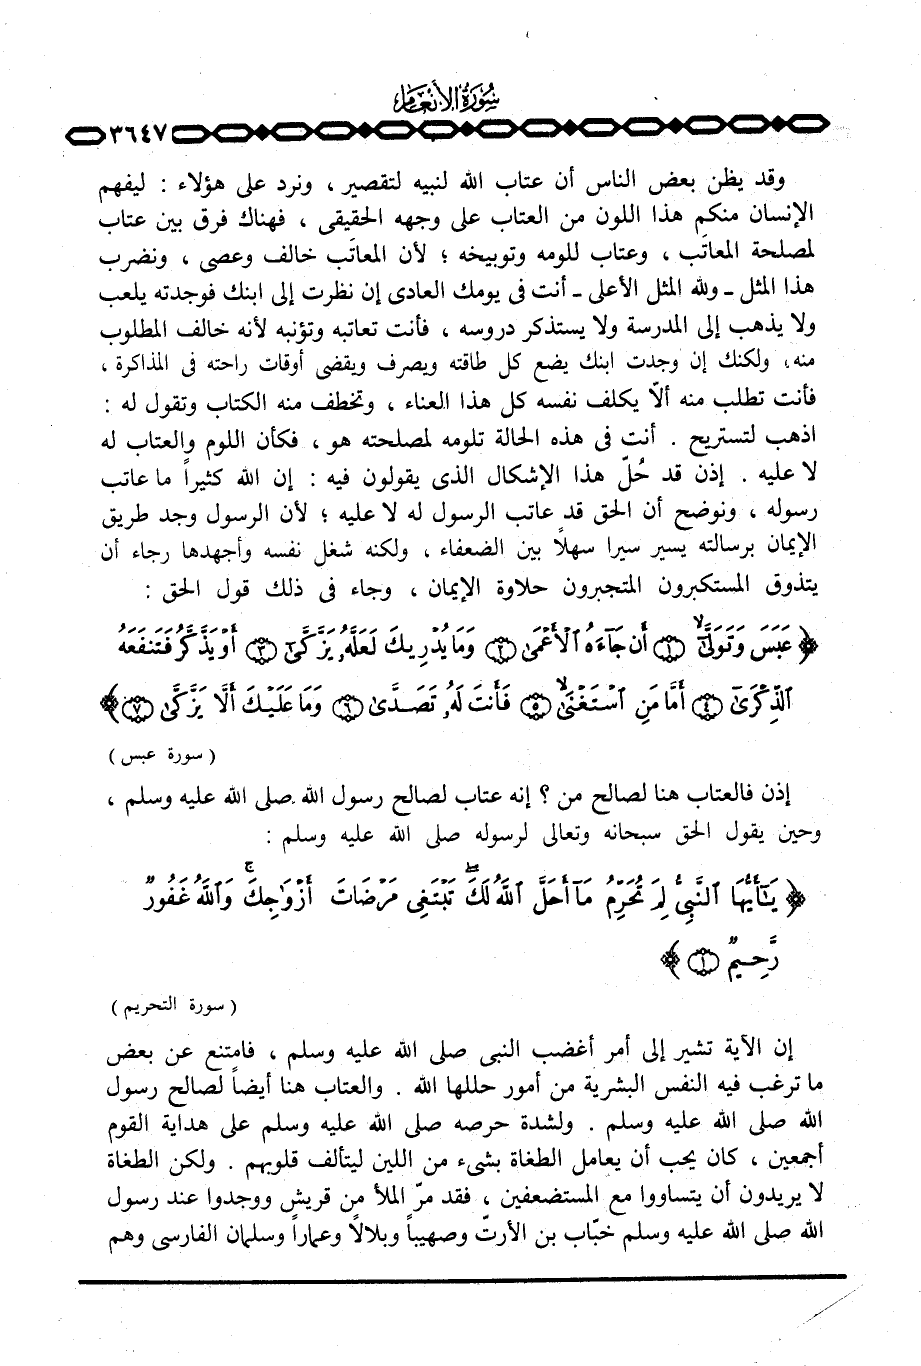 سورة الأنعام
٣٦٤٧
وقد يظن بعض الناس أن عتاب الله لنبيه لتقصير ، ونرد على هؤلاء : ليفهم
الإنسان منكم هذا اللون من العتاب على وجهه الحقيقى ، فهناك فرق بين عتاب
لمصلحة المعاتَب ، وعتاب للومه وتوبيخه ؛ لأن المعاتَب خالف وعصى ، ونضرب
هذا المثل ـ ولله المثل الأعلى ـ أنت فى يومك العادى إن نظرت إلى ابنك فوجدته يلعب
ولا يذهب إلى المدرسة ولا يستذكر دروسه ، فأنت تعاتبه وتؤنبه لأنه خالف المطلوب
منه، ولكنك إن وجدت ابنك يضع كل طاقته ويصرف ويقضى أوقات راحته فى المذاكرة ،
فأنت تطلب منه ألاّ يكلف نفسه كل هذا العناء ، وتخطف منه الكتاب وتقول له :
اذهب لتستريح . أنت فى هذه الحالة تلومه لمصلحته هو ، فكأن اللوم والعتاب له
لا عليه . إذن قد حُلّ هذا الإشكال الذى يقولون فيه : إن الله كثيراً ما عاتب
رسوله ، ونوضح أن الحق قد عاتب الرسول له لا عليه ؛ لأن الرسول وجد طريق
الإيمان برسالته يسير سيرا سهلاً بين الضعفاء ، ولكنه شغل نفسه وأجهدها رجاء أن
يتذوق المستكبرون المتجبرون حلاوة الإيمان ، وجاء فى ذلك قول الحق :
﴿ عَبَسَ وَتَوَلَّىٰٓ ۝١ أَن جَآءَهُ ٱلْأَعْمَىٰ ۝٢ وَمَا يُدْرِيكَ لَعَلَّهُۥ يَزَّكَّىٰٓ ۝٣ أَوْ يَذَّكَّرُ فَتَنفَعَهُ
ٱلذِّكْرَىٰٓ ۝٤ أَمَّا مَنِ ٱسْتَغْنَىٰ ۝٥ فَأَنتَ لَهُۥ تَصَدَّىٰ ۝٦ وَمَا عَلَيْكَ أَلَّا يَزَّكَّىٰ ۝٧ ﴾
( سورة عبس )
إذن فالعتاب هنا لصالح من ؟ إنه عتاب لصالح رسول الله صلى الله عليه وسلم ،
وحين يقول الحق سبحانه وتعالى لرسوله صلى الله عليه وسلم :
﴿ يَـٰٓأَيُّهَا ٱلنَّبِىُّ لِمَ تُحَرِّمُ مَآ أَحَلَّ ٱللَّهُ لَكَ ۖ تَبْتَغِى مَرْضَاتَ أَزْوَٰجِكَ ۚ وَٱللَّهُ غَفُورٌ
رَّحِيمٌ ۝١ ﴾
( سورة التحريم )
إن الآية تشير إلى أمر أغضب النبى صلى الله عليه وسلم ، فامتنع عن بعض
ما ترغب فيه النفس البشرية من أمور حللها الله . والعتاب هنا أيضاً لصالح رسول
الله صلى الله عليه وسلم . ولشدة حرصه صلى الله عليه وسلم على هداية القوم
أجمعين ، كان يحب أن يعامل الطغاة بشىء من اللين ليتألف قلوبهم . ولكن الطغاة
لا يريدون أن يتساووا مع المستضعفين ، فقد مرّ الملأ من قريش ووجدوا عند رسول
الله صلى الله عليه وسلم خبّاب بن الأرتّ وصهيباً وبلالاً وعماراً وسلمان الفارسى وهم